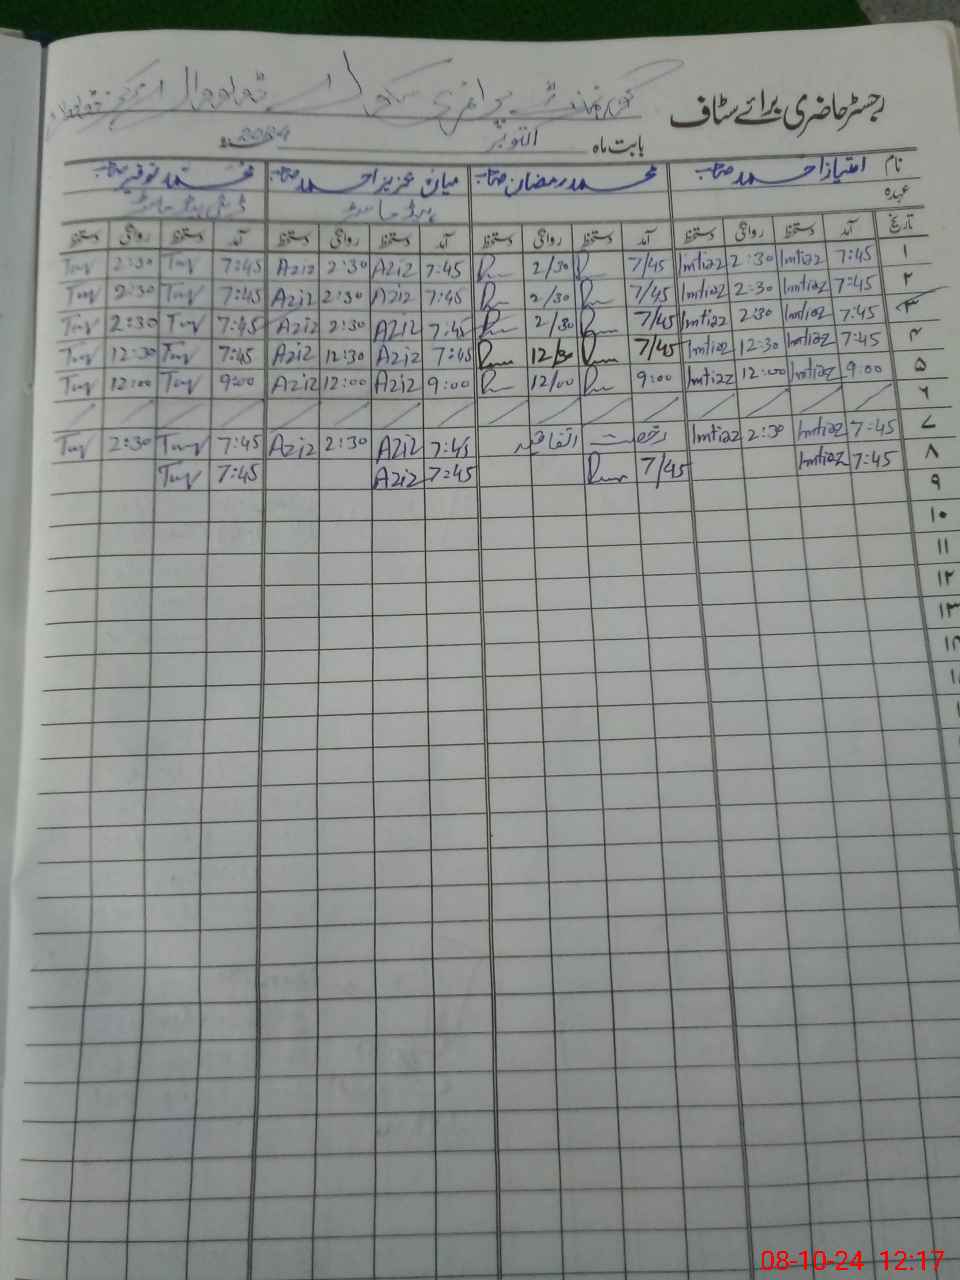 رجسٹر حاضری برائے سٹاف
گورنمنٹ پرائمری سکول
بابت ماہ اکتوبر 2024ء
نام امتیاز احمد صاحب محمد رمضان صاحب میاں عزیز احمد صاحب محمد توقیر صاحب
عہدہ
تاریخ آمد دستخط روانگی دستخط آمد دستخط روانگی دستخط آمد دستخط روانگی دستخط آمد دستخط روانگی دستخط
۱ 7:45 Imtiaz 2:30 Imtiaz 7/45 2/30 7:45 Aziz 2:30 Aziz 7:45 2:30
۲ 7:45 Imtiaz 2:30 Imtiaz 7/45 2/30 7:45 Aziz 2:30 Aziz 7:45 2:30
۳ 7:45 Imtiaz 2:30 Imtiaz 7/45 2/30 7:45 Aziz 2:30 Aziz 7:45 2:30
۴ 7:45 Imtiaz 12:30 Imtiaz 7/45 12/30 7:45 Aziz 12:30 Aziz 7:45 12:30
۵ 9:00 Imtiaz 12:00 Imtiaz 9:00 12/00 9:00 Aziz 12:00 Aziz 9:00 12:00
۶
۷ 7:45 Imtiaz 2:30 Imtiaz رخصت اتفاقیہ 7:45 Aziz 2:30 Aziz 7:45 2:30
۸ 7:45 Imtiaz 7/45 7:45 Aziz 7:45
۹
۱۰
۱۱
۱۲
۱۳
08-10-24 12:17